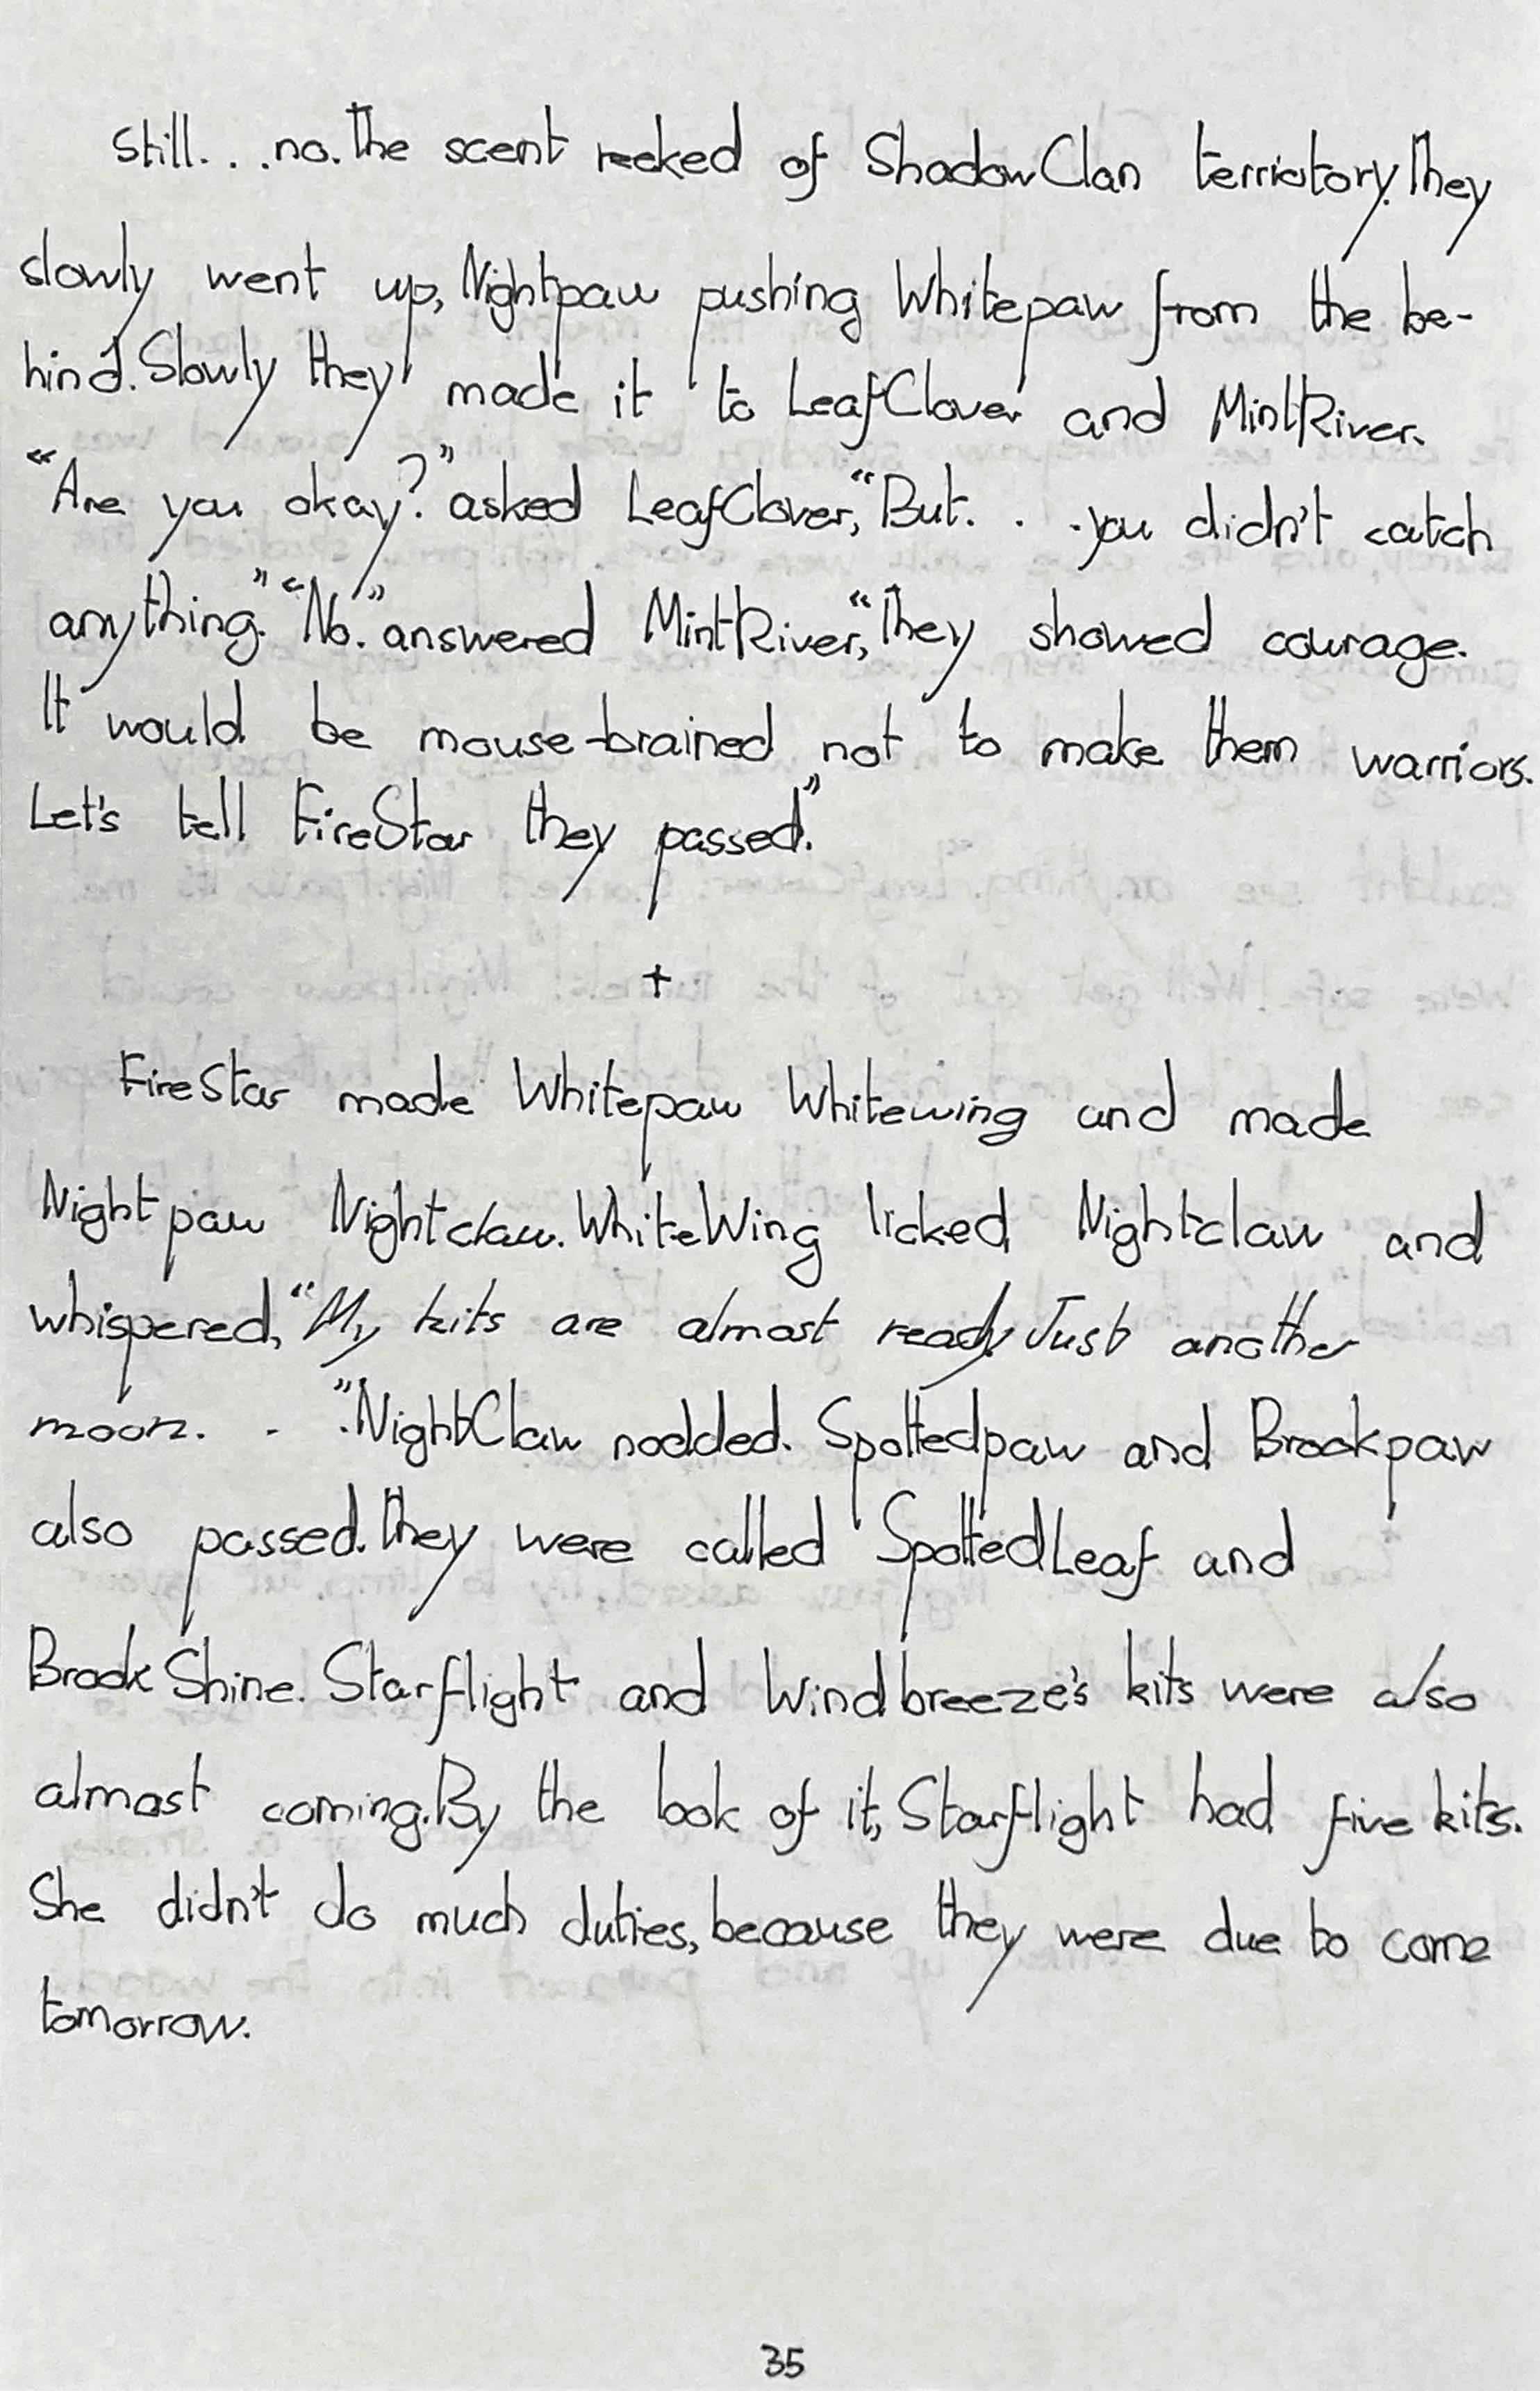 Still. . .no. The scent reeked of ShadowClan terriotory. They
slowly went up, Nightpaw pushing Whitepaw from the be-
hind. Slowly they made it to LeafClover and MintRiver.
“Are you okay?” asked LeafClover, “But. . .you didn't catch
anything.” “No.” answered MintRiver, “They showed courage.
It would be mouse-brained not to make them warriors.
Let's tell FireStar they passed.”
+
FireStar made Whitepaw Whitewing and made
Nightpaw Nightclaw. WhiteWing licked Nightclaw and
whispered, “My kits are almost ready. Just another
moon. . .” NightClaw nodded. Spottedpaw and Brookpaw
also passed. They were called SpottedLeaf and
BrookShine. Starflight and Windbreeze's kits were also
almost coming. By the look of it, Starflight had five kits.
She didn't do much duties, because they were due to come
tomorrow.
35